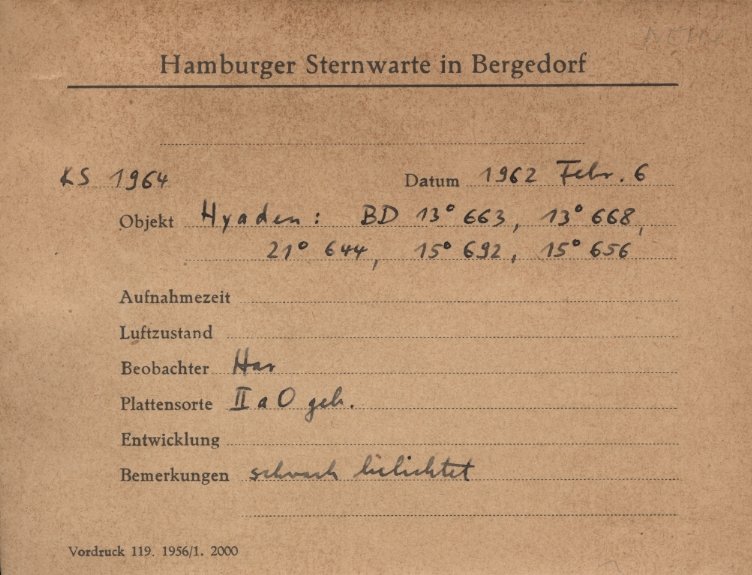 Hamburger Sternwarte in Bergedorf
KS 1964 Datum 1962 Febr. 6
Objekt Hyaden: BD 13° 663, 13° 668,
21° 644, 15° 692, 15° 656
Aufnahmezeit
Luftzustand
Beobachter Har
Plattensorte II a O geh.
Entwicklung
Bemerkungen schwach belichtet
Vordruck 119. 1956/1. 2000